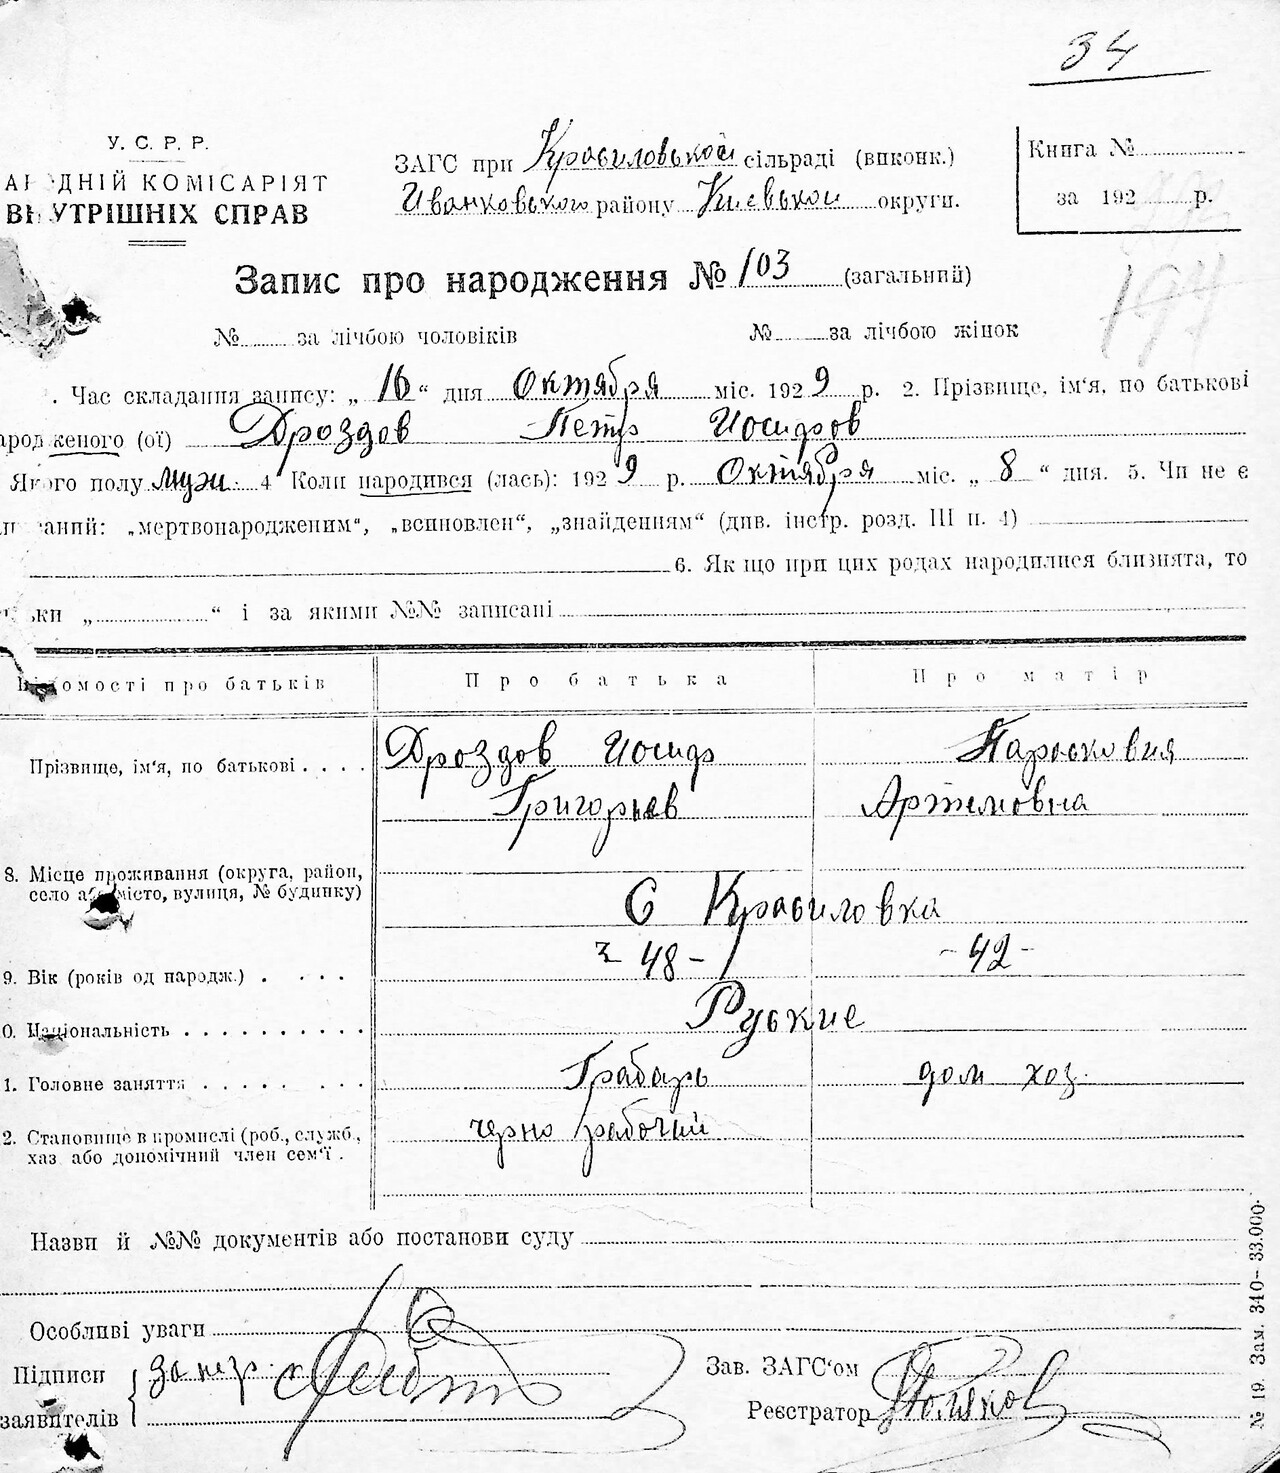 34
У. С. Р. Р.
ЗАГС при Красиловькой сільраді (виконк.)
Книга №
ДНІЙ КОМІСАРІЯТ
Иванковського району Киевькой округи.
за 192 р.
ВНУТРІШНІХ СПРАВ
Запис про народження № 103 (загальний)
194
№ за лічбою чоловіків № за лічбою жінок
Час складання запису: „ 16 “ дня Октября міс. 1929 р. 2. Прізвище, ім'я, по батькові
народженого (ої) Дроздов Петр Иосифов
Якого полу муж. 4 Коли народився (лась): 1929 р. Октября міс. „ 8 “ дня. 5. Чи не є
„мертвонародженим“, „всиновлен“, „знайденням“ (див. інстр. розд. III п. 4)
6. Як що при цих родах народилися близнята, то
„ “ і за якими №№ записані
Відомості про батьків Про батька Про матір
Прізвище, ім'я, по батькові . . . . Дроздов Иосиф Парасковия
Григорьев Артемовна
8. Місце проживання (округа, район,
село або місто, вулиця, № будинку) С Красиловка
9. Вік (років од народж.) . . . . 48 - - 42 -
0. Національність . . . . . . . . . . Руские
1. Головне заняття . . . . . . . . . Грабарь дом хоз.
2. Становище в промислі (роб., служб., черно рабочий
хаз або допомічний член сем'ї .
Назви й №№ документів або постанови суду
Особливі уваги
Підписи
заявителів
за нер.
Зав. ЗАГС'ом
Реєстратор
№ 19. Зам. 340- 33.000·